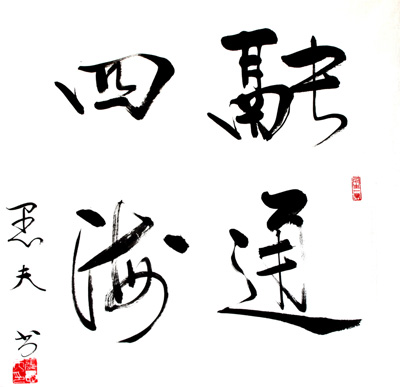 融通
四海
夫书